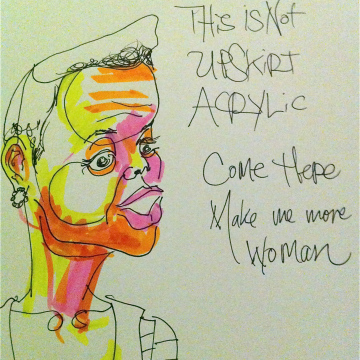 THIS IS NOT
UPSKIRT
ACRYLIC
COME HERE
Make me more
WOMAN